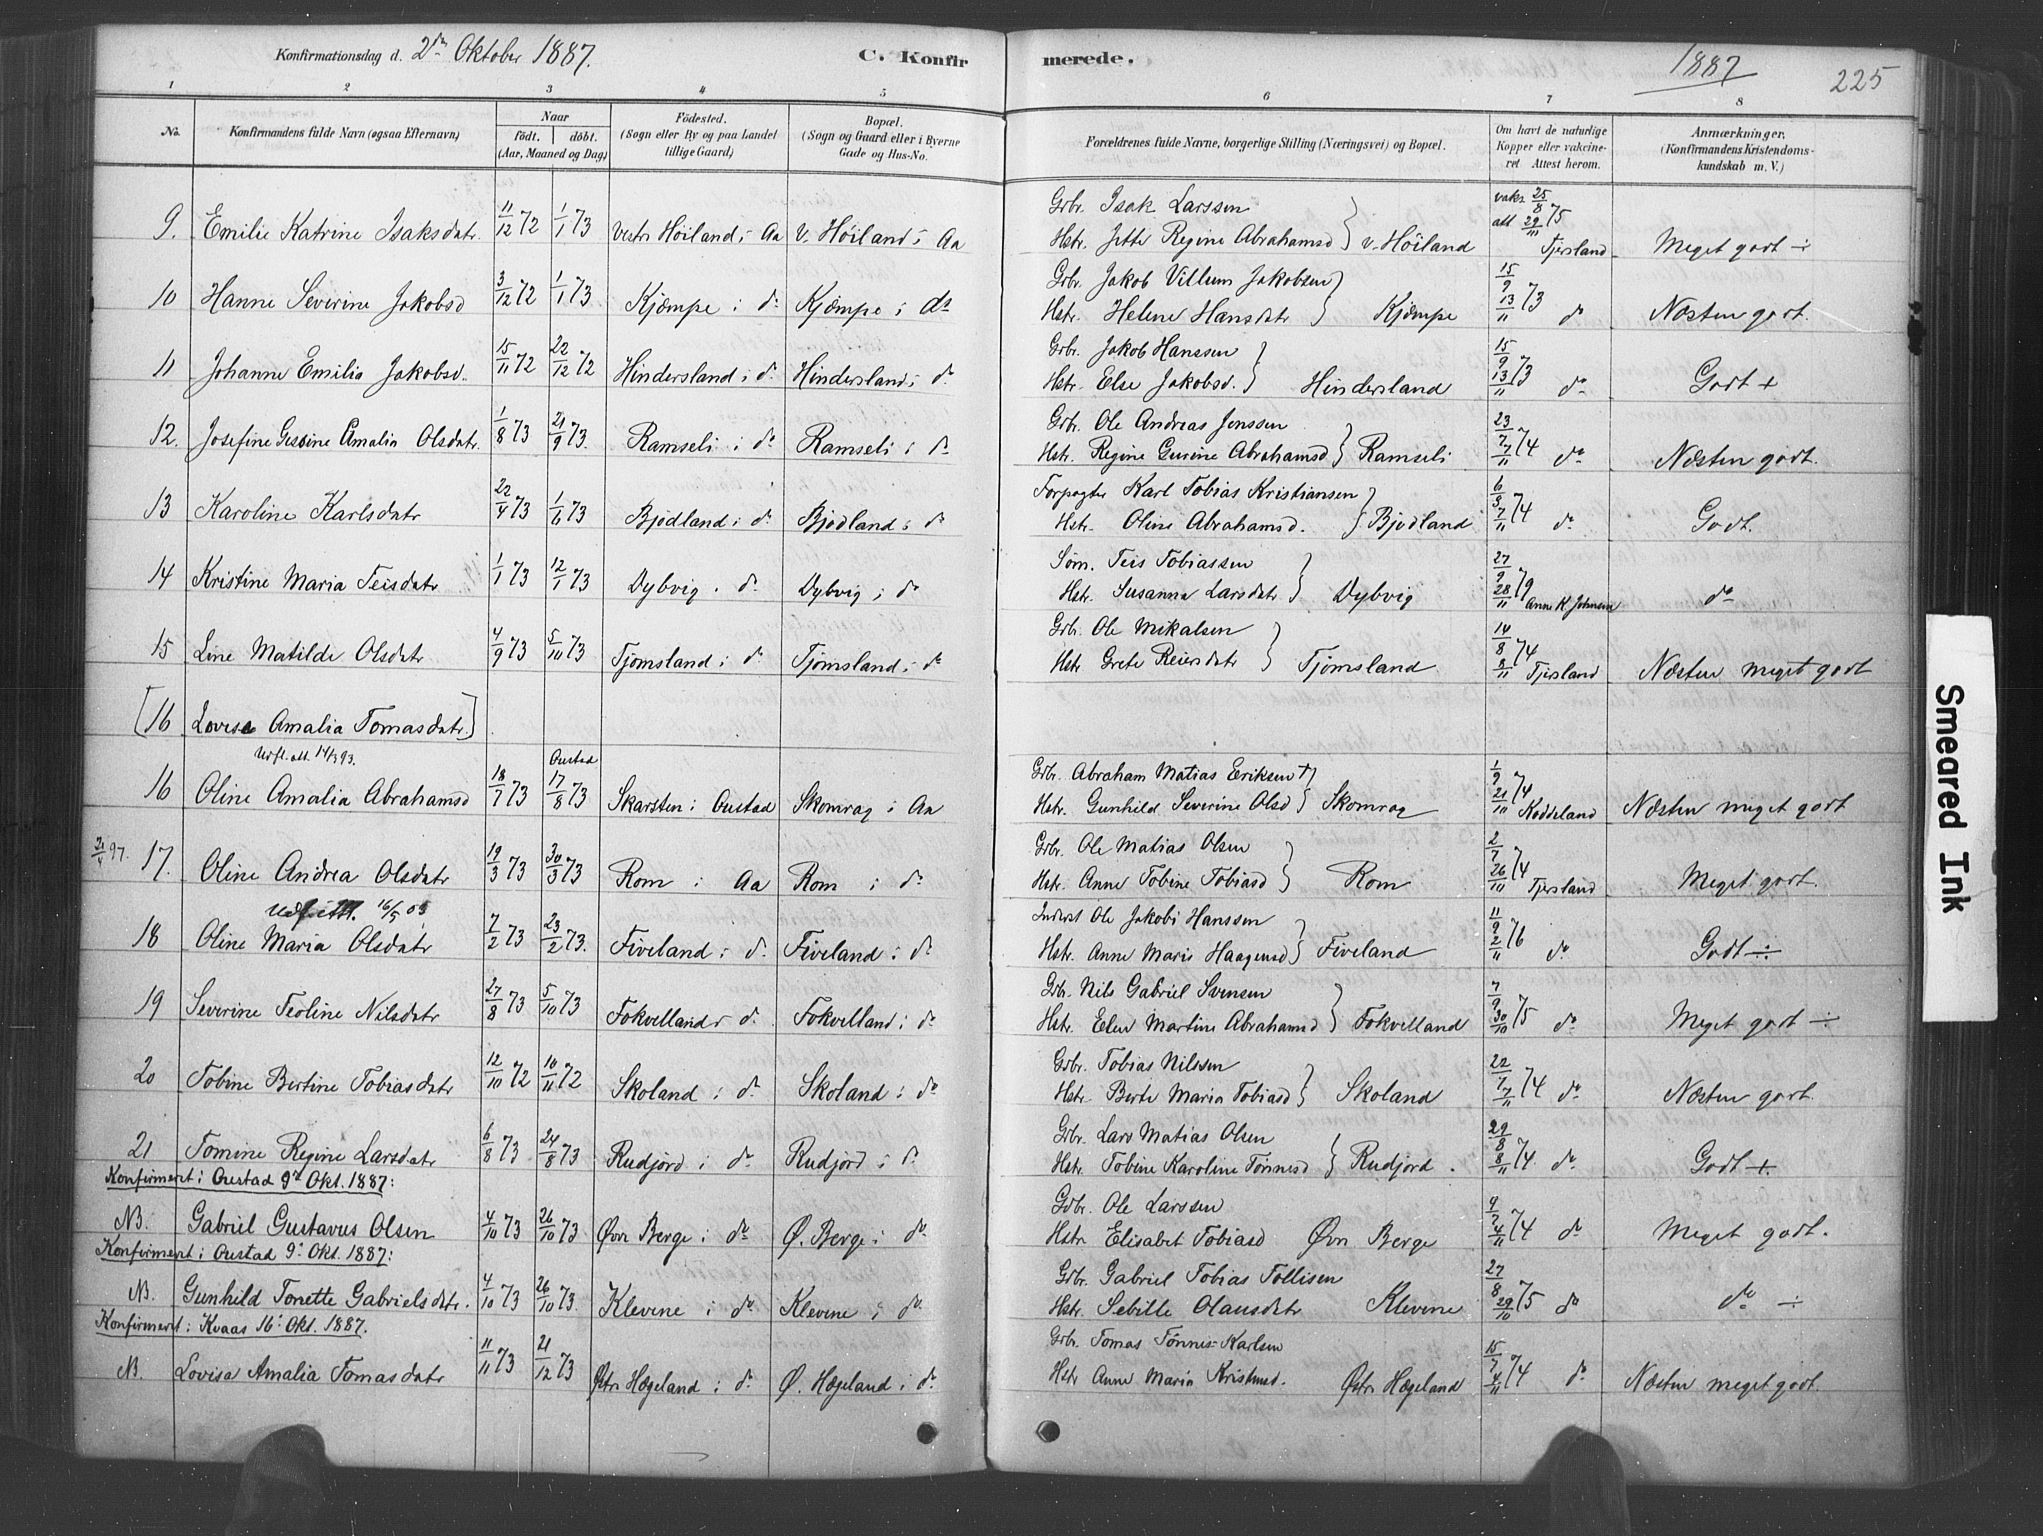 Konfirmationsdag d. 2den Oktober 1887.
C. Konfirmerede.
1887
225
1 2 3 4 5 6 7 8
No.
Konfirmandens fulde Navn (ogsaa Efternavn)
Naar
födt. döbt.
(Aar, Maaned og Dag)
Födested.
(Sogn eller By og paa Landet
tillige Gaard)
Bopæl.
(Sogn og Gaard eller i Byerne
Gade og Hus-No.
Forældrenes fulde Navne, borgerlige Stilling (Næringsvei) og Bopæl.
Om havt de naturlige
Kopper eller vakcine-
ret Attest herom.
Anmærkninger,
(Konfirmandens Kristendoms-
kundskab m. V.)
9. Emilie Katrine Isaksdatr. 11/12 72 1/1 73 Vestr Höiland i Aa V. Höiland i Aa
Grbr. Isak Larssen
Hstr. Jette Regine Abrahamsd } V. Höiland
vaks 25/8 att 29/11 75 Tjersland Meget godt ÷
10 Hanne Severine Jakobsd 3/12 72 1/1 73 Kjæmpe i do Kjæmpe i do
Grbr. Jakob Villum Jakobsen
Hstr. Helene Hansdatr } Kjæmpe
15/9 13/11 73 do Næsten godt.
11 Johanne Emilie Jakobsd. 15/11 72 22/12 72 Hindersland i do Hindersland i do
Grbr. Jakob Hanssen
Hstr. Else Jakobsd. } Hindersland
15/9 13/11 73 do Godt +
12. Josefine Gessine Amalia Olsdatr. 1/8 73 21/9 73. Ramseli i do Ramseli i do
Grbr. Ole Andreas Jenssen
Hstr. Regine Gurine Abrahamsd } Ramseli
23/7 7/11 74 do Næsten godt.
13 Karoline Karlsdatr 22/4 73 1/6 73 Bjödland i do Bjödland i do
Forpagter Karl Tobias Kristiansen
Hstr. Oline Abrahamsd. } Bjödland
6/8 7/11 74 do Godt.
14 Kristine Maria Teisdatr 1/1 73 12/1 73 Dybvig i do Dybvig i do
Söm. Teis Tobiassen
Hstr. Susanna Larsdatr } Dybvig
27/9 28/11 79 Anne K. Johnsen do
15 Line Matilde Olsdatr 4/9 73 5/10 73 Tjömsland i do Tjömsland i do
Grbr. Ole Mikalsen
Hstr Grete Reiersdatr } Tjömsland
14/8 8/11 74 Tjersland Næsten meget godt
[16 Lovise Amalia Tomasdatr.]
Udfl. att. 14/3 93.
16 Oline Amalia Abrahamsd 18/7 73 Oustad 17/8 73 Skarsten i Oustad Skomrag i Aa
Grbr. Abraham Matias Eriksen +
Hstr. Gunhild Severine Olsd } Skomrag
1/9 21/10 74 Koddeland Næsten meget godt
21/4 97. 17. Oline Andrea Olsdatr 19/3 73 30/3 73 Rom i Aa Rom i do
Grbr. Ole Matias Olsen
Hstr. Anne Tobine Tobiasd } Rom
2/7 26/10 74 Tjersland Meget godt.
16/5 03
18 Oline Maria Olsdatr 7/2 73 23/2 73. Fiveland i do Fiveland i do
Inderst Ole Jakobi Hanssen
Hstr. Anne Marie Haagensd } Fiveland
11/9 2/11 76 do Godt ÷
19 Severine Teoline Nilsdatr 27/8 73 5/10 73 Fokvelland i do Fokvelland i do
Grbr. Nils Gabriel Svensen
Hstr. Elen Martine Abrahamsd } Fokvelland
7/9 30/10 75 do Meget godt ÷
20 Tobine Bertine Tobiasdatr 12/10 72 10/11 72 Skoland i do Skoland i do
Grbr. Tobias Nilssen
Hstr. Berte Maria Tobiasd } Skoland
22/7 7/11 74 do Næsten godt.
21 Tomine Regine Larsdatr 6/8 73 24/8 73 Rudjord i do Rudjord i do
Grbr. Lars Matias Olsen
Hstr. Tobine Karoline Tönnesd } Rudjord.
29/8 8/11 74. do Godt +
Konfirmeret i Oustad 9de Okt. 1887:
NB. Gabriel Gustavus Olsen 4/10 73 26/10 73 Øvr Berge i do Ø. Berge i do
Grbr. Ole Larssen
Hstr Elisabet Tobiasd Øvr Berge
9/7 4/11 74 do Meget godt.
Konfirmeret i Oustad 9. Okt. 1887:
NB. Gunhild Tonette Gabrielsdatr. 4/10 73 26/10 73. Klevene i do Klevene i do
Grbr. Gabriel Tobias Tollisen
Hstr. Sebille Olausdatr Klevene
27/8 29/10 75 do do ÷
Konfirmeret i Kvaas 16. Okt. 1887.
NB. Lovise Amalia Tomasdatr 11/11 73 21/12 73 Østr Hægeland i do Ø. Hægeland i do
Grbr. Tomas Tönnes Karlsen
Hstr Anne Maria Kristensd. Østr Hægeland
15/7 4/11 74 do Næsten meget godt.
Smeared Ink